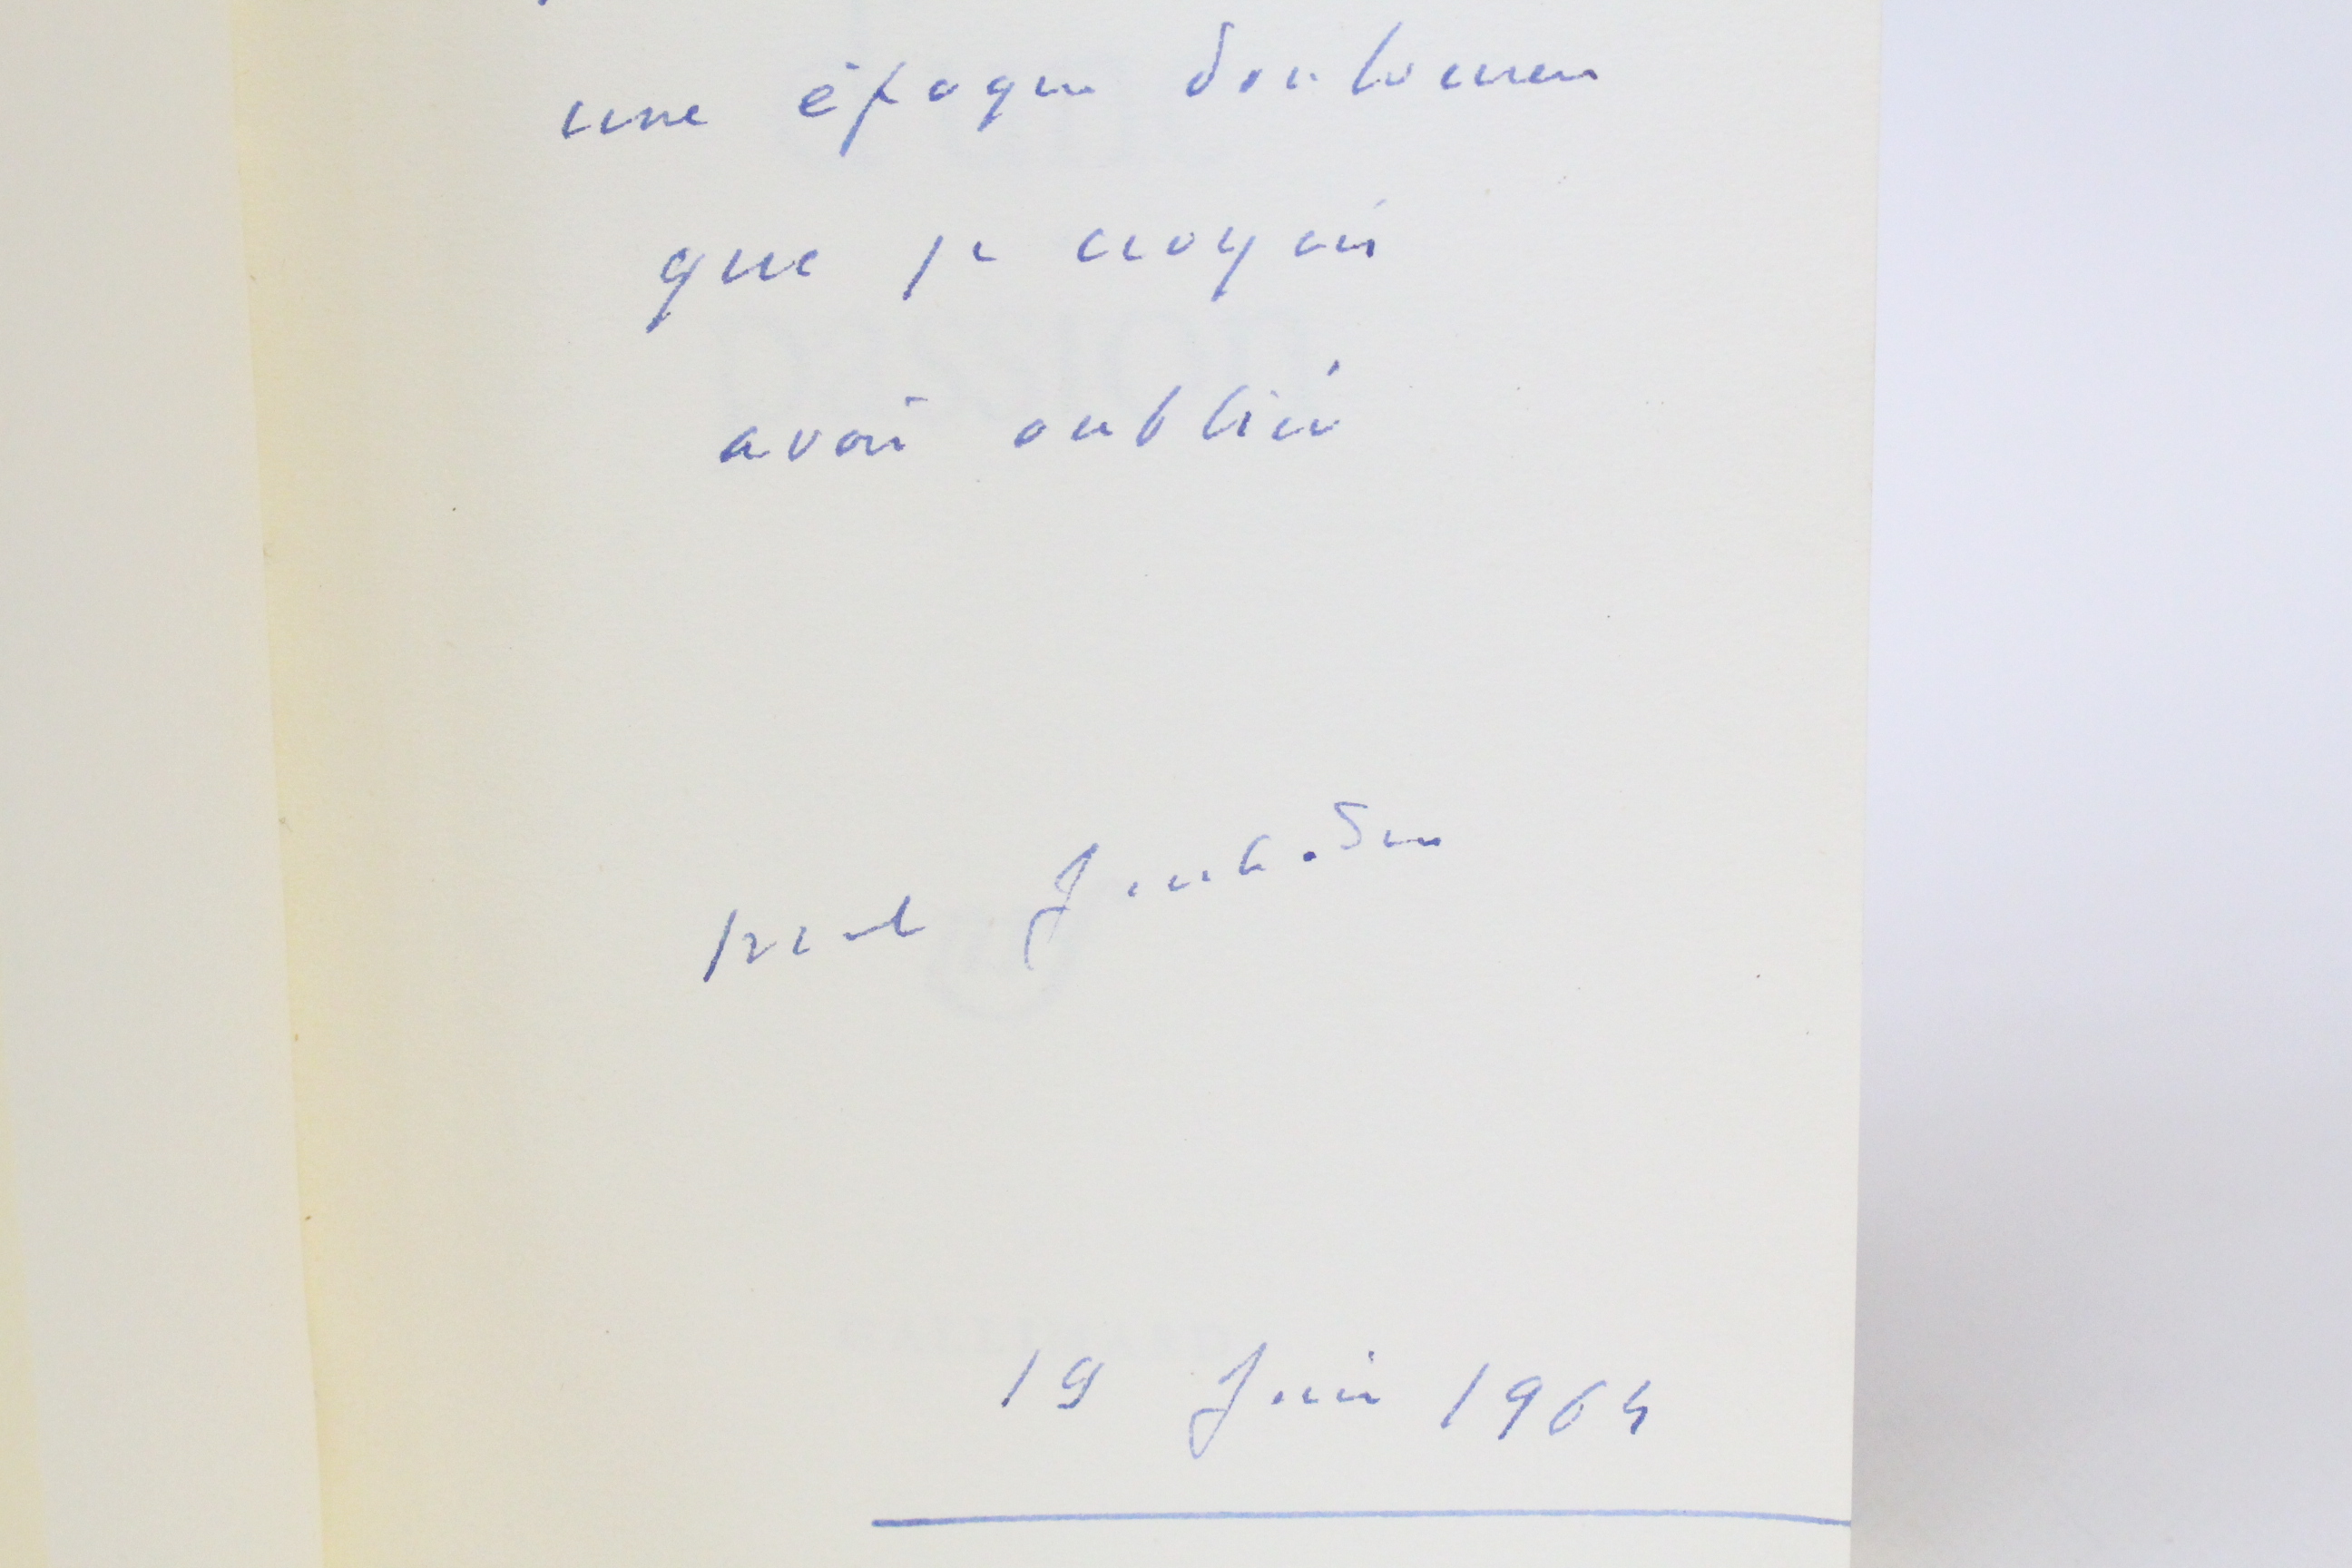 une époque douloureuse
que je croyais
avoir oublié
Marcel Jouhandeau
19 Juin 1964